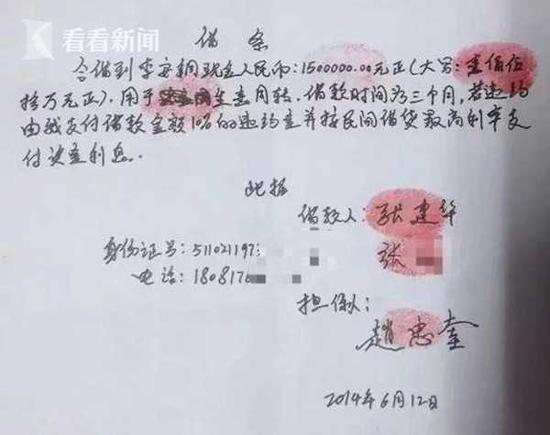 看看新闻
借条
今借到李安钢现金人民币：1500000.00元正（大写：壹佰伍
拾万元正）.用于生意周转.借款时间为三个月,若违约
由我支付借款金额10%的违约金并按民间借贷最高利率支
付资金利息.
此据
借款人：张建华
身份证号：511021197 张
电话：180817
担保人：
赵忠奎
2014年6月12日